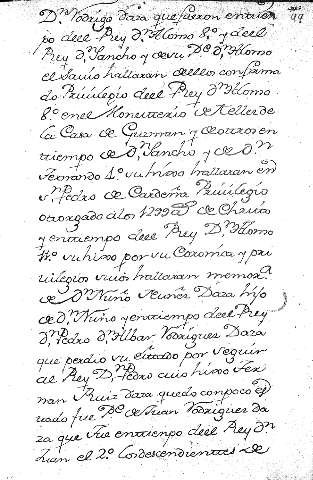 Dn Rodrigo daza que fueron en tiem
po de el Rey Dn Alonso 8º y de el
Rey Dn Sancho y de su Pe Dn Alonso
el Savio hallaran de ello confirma
do Privilegio de el Rey Dn Alonso
8º en el Monesterio de
la Casa de Guzman y de otros en
tiempo de Dn Sancho y de Dn
Fernando 4º su hixo hallaran en
Sn Pedro de Cardeña Privilegio
otorgado a los 1299 as de Christo
y en tiempo de el Rey Dn Alonso
su hixo por su Coronica y pri
vilegios suios hallaran memoria
de Dn Nuño Nuñez Daza hijo
de Dn Nuño y en tiempo de el Rey
Dn Pedro Dn Albar Rodriguez Daza
que perdio su estado por seguir
al Rey Dn Pedro cuio hixo Fer
nan Ruiz daza quedo con poco es
tado fue Pe de Juan Rodriguez da
za que fue en tiempo de el Rey Dn
Juan el 2º Los descendientes de